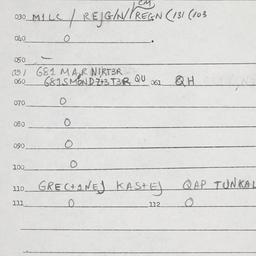 CM
030 MILC / REJGIN/ REGN (131 (103
040 O
050
051 G81 MARNIRT3R
060 G81SMONDZ+3T3R QU 061 QH
070 O
080 O
090 O
100 O
110 GREC+1NEJ KAS+EJ QAP TUNKAL
111 O 112 O